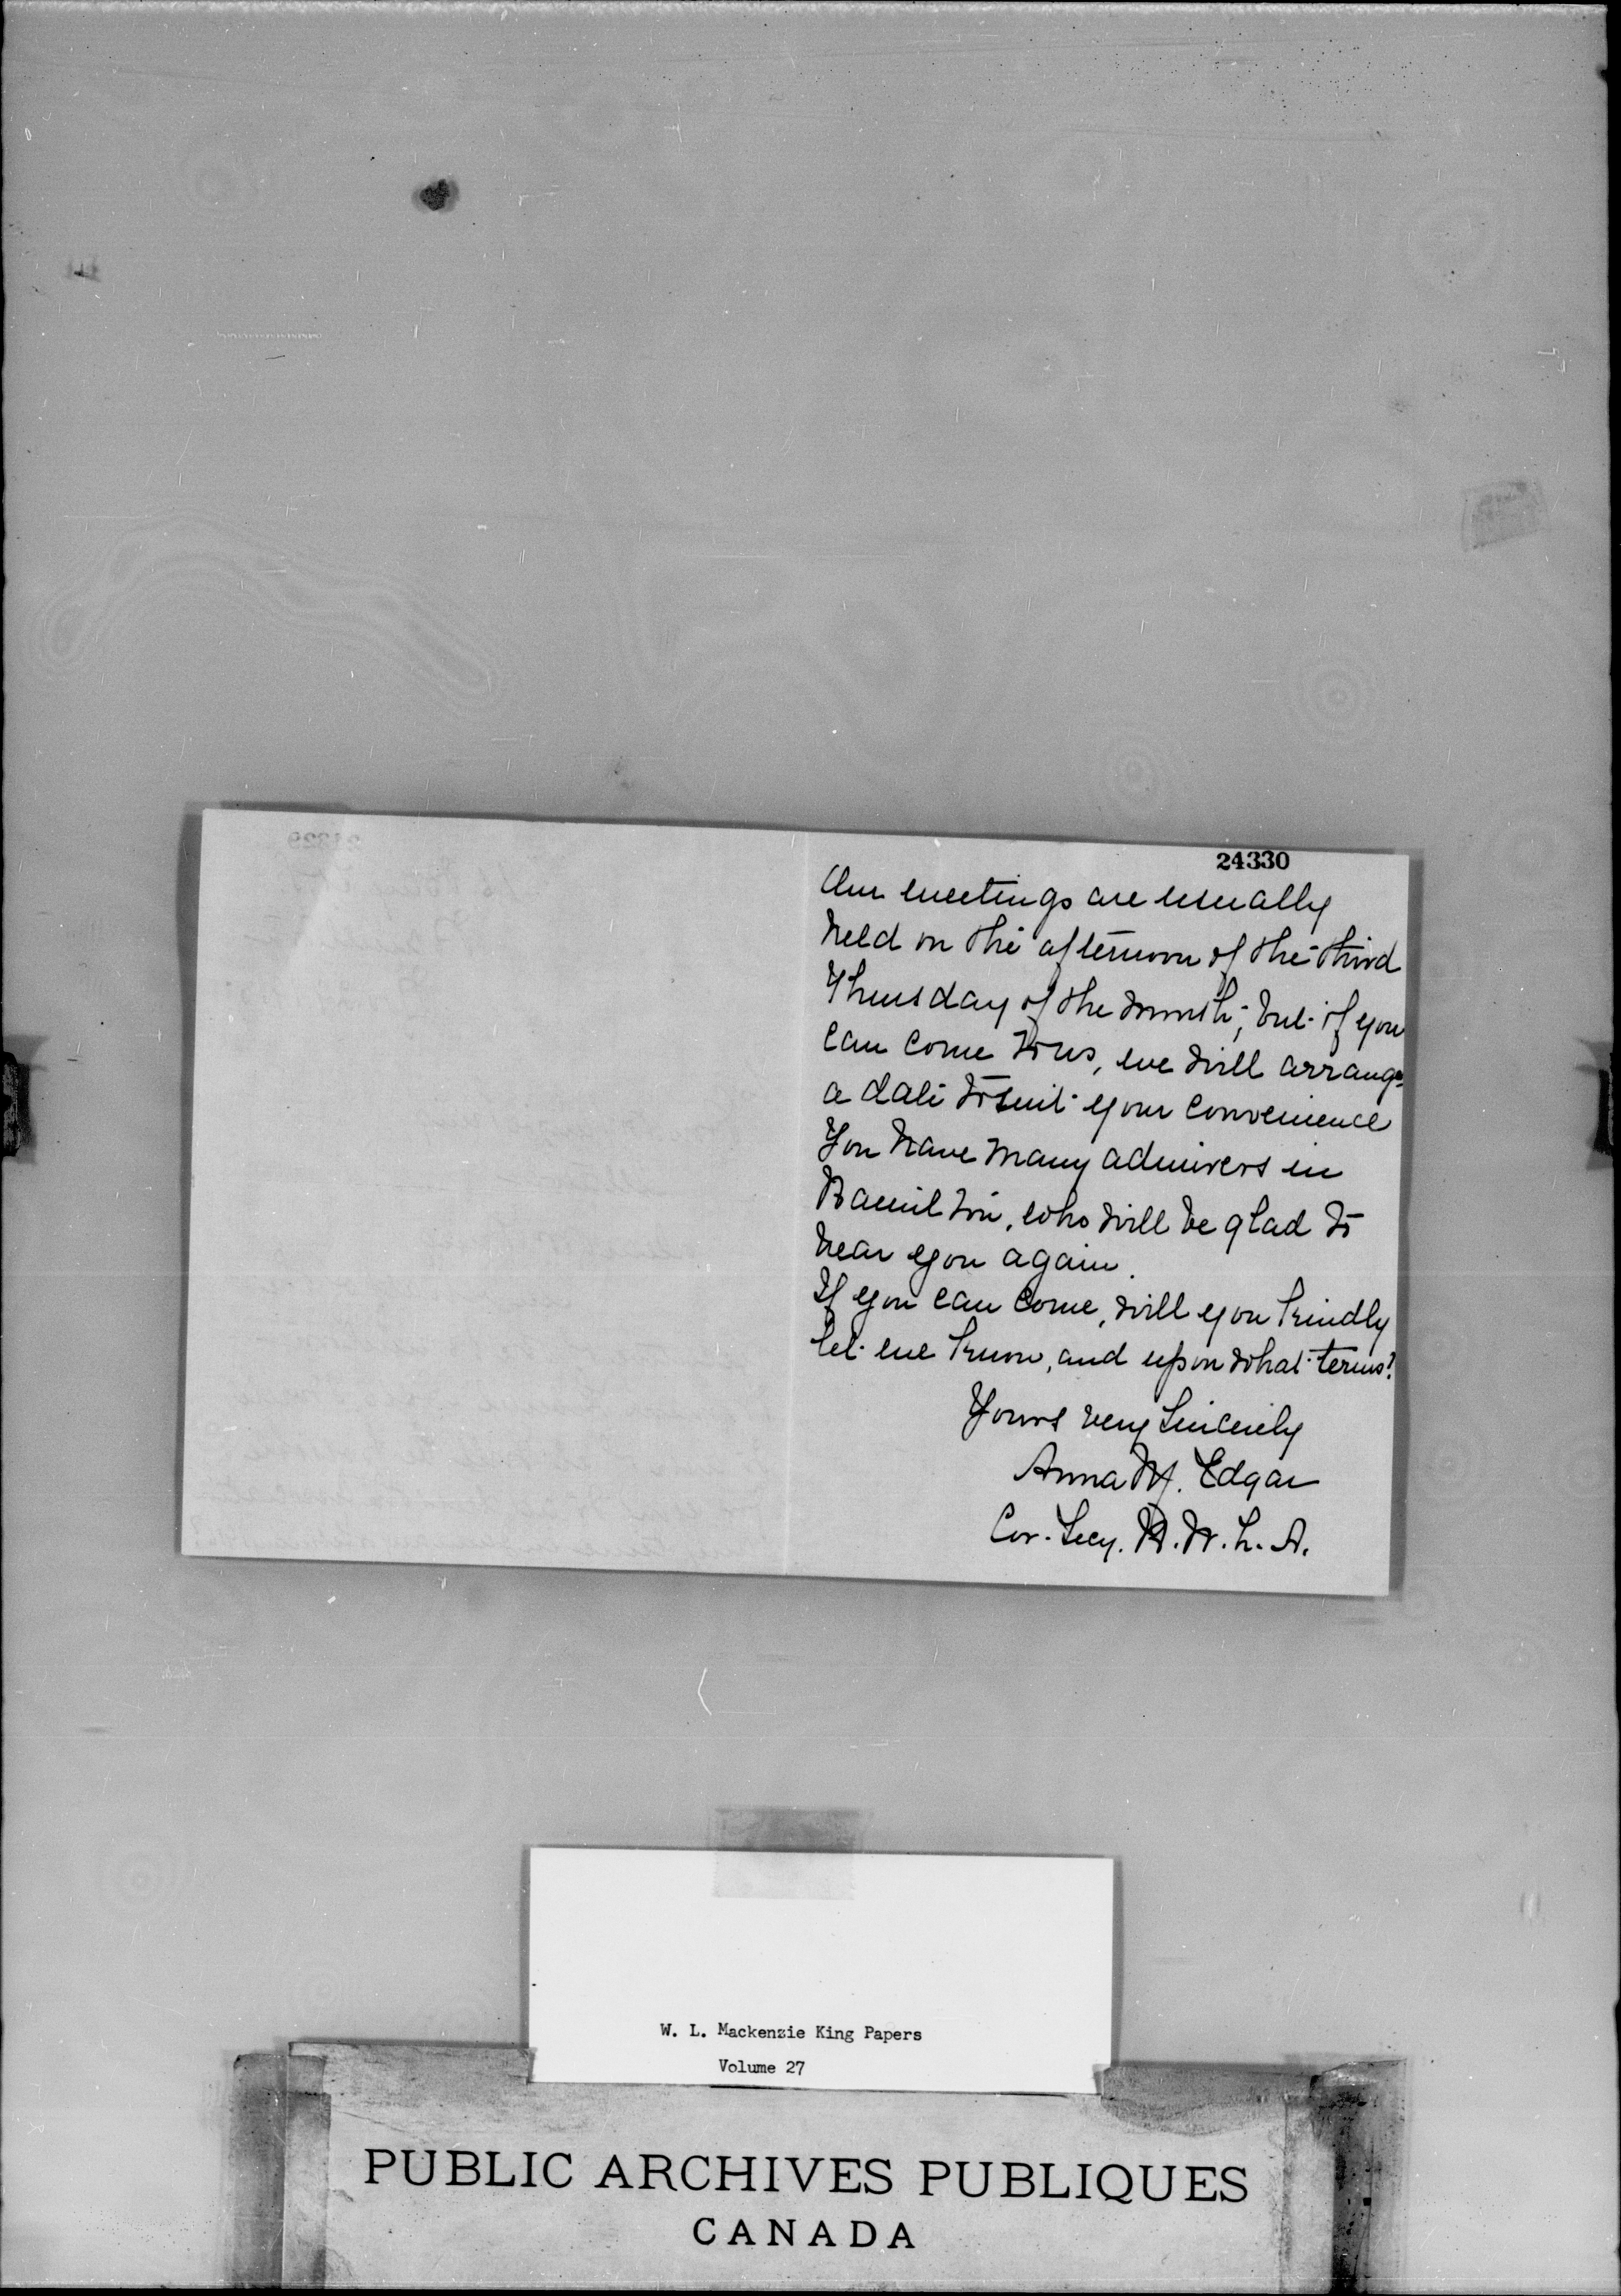 24330
Our meetings are usually
held on the afternoon of the third
Thursday of the month; but if you
can come to us, we will arrange
a date to suit your convenience
You have many admirers in
Hamilton, who will be glad to
hear you again.
If you can come, will you kindly
let me know, and upon what terms?
Yours very sincerely
Anna M. Edgar
Cor. Secy. H. W. L. A.
W. L. Mackenzie King Papers
Volume 27
PUBLIC ARCHIVES PUBLIQUES
CANADA